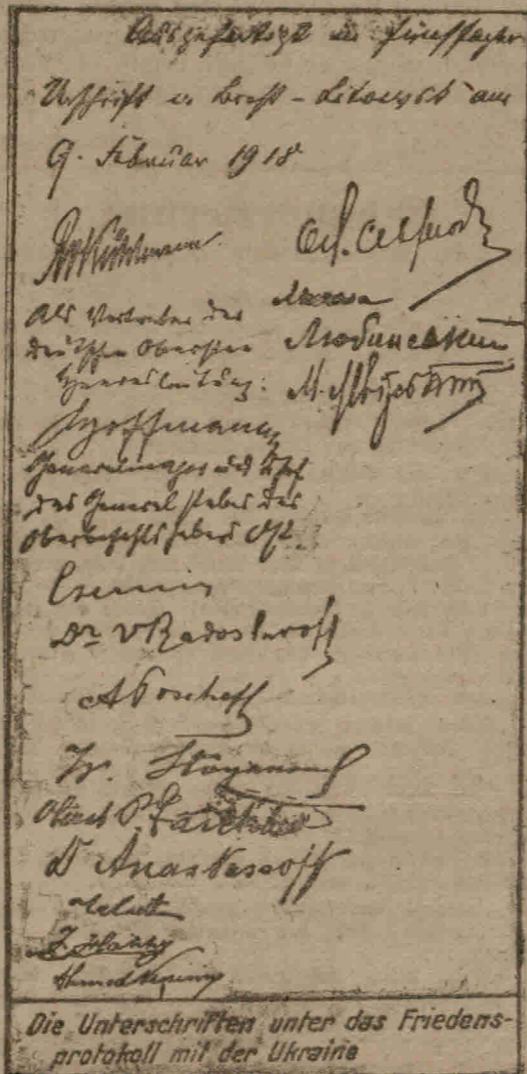 Ausgefertigt in fünffacher
Urschrift in Brest-Litowsk am
9. Februar 1918
Kühlmann
Als Vertreter der
deutschen Obersten
Heeresleitung:
Любинський
М.
Hoffmann
Generalmajor und Chef
des Generalstabes des
Oberbefehlshabers Ost.
Czernin
Dr V Radoslawoff
A Toscheff
Iv. Stoyanovich
Oberst P. Gantchew
Dr Anastassoff
Talaat
Ahmed Nessimy
Die Unterschriften unter das Friedens-
protokoll mit der Ukraine